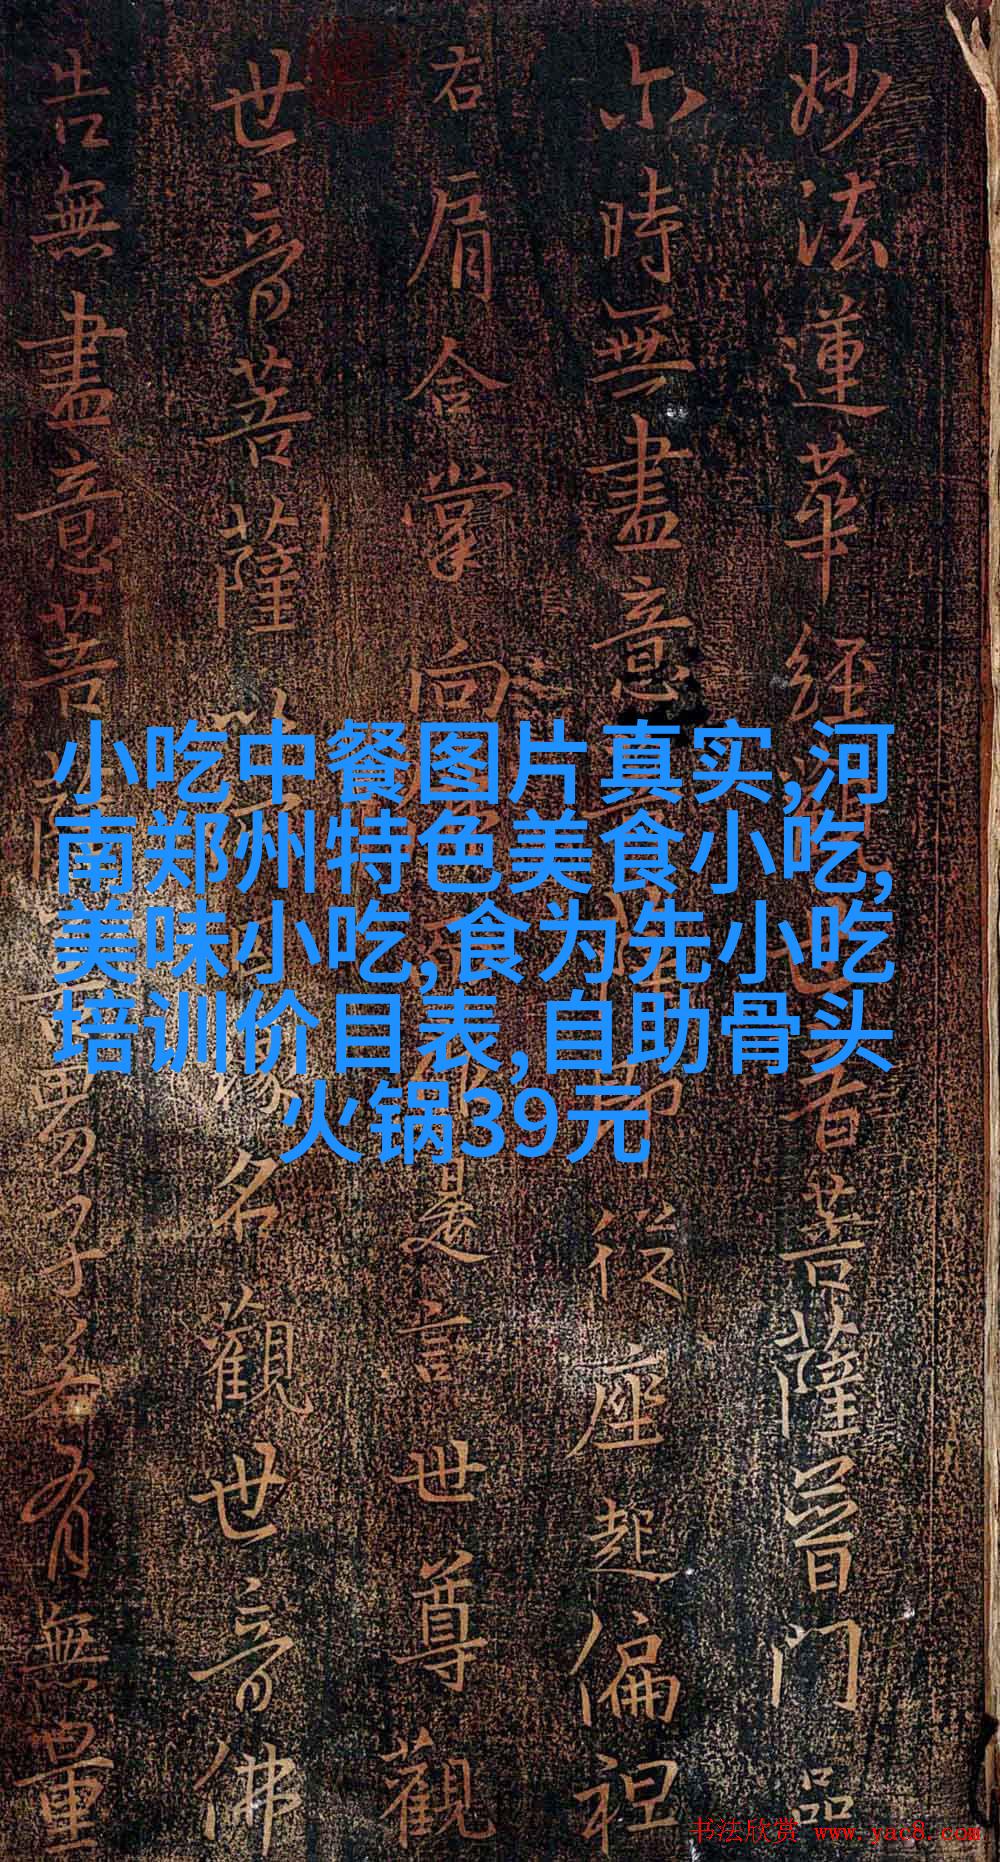 妙法蓮華經觀世音菩薩普門品
尒時無盡意菩薩即從座起偏袒
右肩合掌向佛而作是言世尊觀
世音菩薩以何因緣名觀世音佛
告無盡意菩薩善男子若有無量
小吃中餐图片真实,河
南郑州特色美食小吃,
美味小吃,食为先小吃
培训价目表,自助骨头
火锅39元
书法欣赏 www.yac8.com